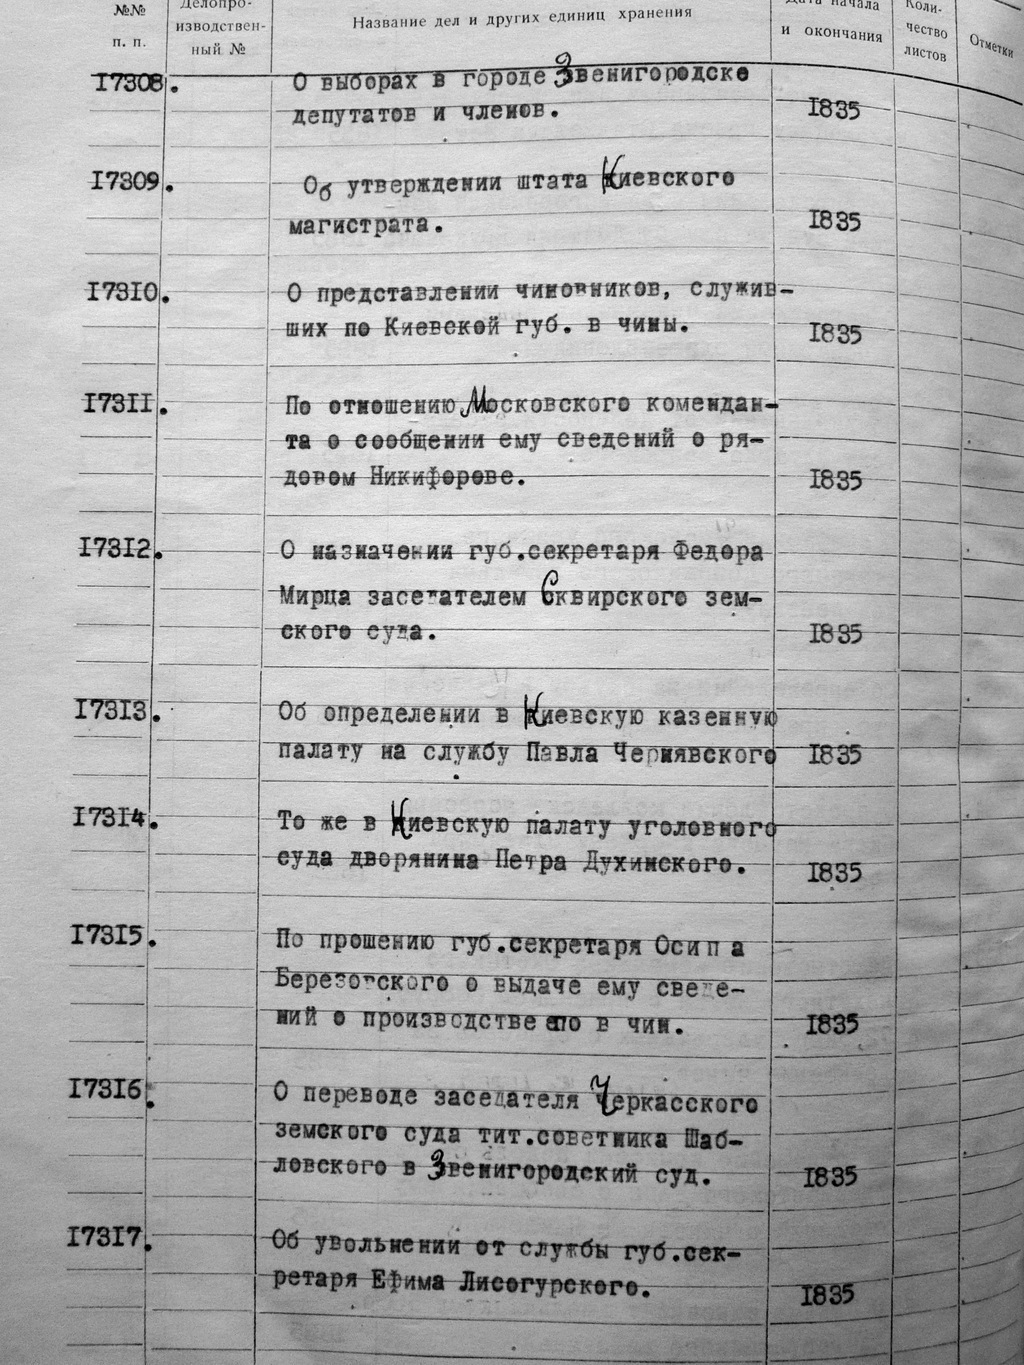 №№
п. п.
Делопро-
изводствен-
ный №
Название дел и других единиц хранения
Дата начала
и окончания
Коли-
чество
листов
Отметки
17308.
О выборах в городе Звенигородске
депутатов и членов.
1835
17309.
Об утверждении штата Киевского
магистрата.
1835
17310.
О представлении чиновников, служив-
ших по Киевской губ. в чины.
1835
17311.
По отношению Московского комендан-
та о сообщении ему сведений о ря-
довом Никифорове.
1835
17312.
О назначении губ.секретаря Федора
Мирца заседателем Сквирского зем-
ского суда.
1835
17313.
Об определении в Киевскую казенную
палату на службу Павла Чернявского
1835
17314.
То же в Киевскую палату уголовного
суда дворянина Петра Духинского.
1835
17315.
По прошению губ.секретаря Осипа
Березовского о выдаче ему сведе-
ний о производстве его в чин.
1835
17316.
О переводе заседателя Черкасского
земского суда тит.советника Шаб-
ловского в Звенигородский суд.
1835
17317.
Об увольнении от службы губ.сек-
ретаря Ефима Лисогурского.
1835